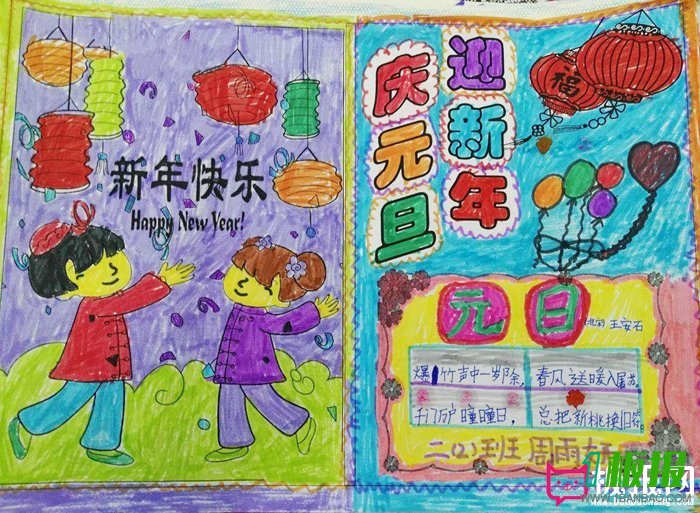 新年快乐
Happy New Year!
庆元旦
迎新年
福
元日
(北宋) 王安石
爆竹声中一岁除,春风送暖入屠苏。
千门万户瞳瞳日,总把新桃换旧符。
二(2)班 周雨
板报网
WWW.1BANBAO.COM